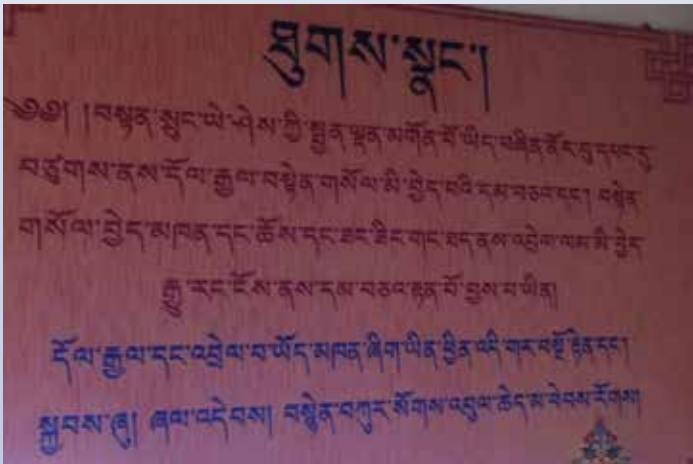 ཐུགས་སྣང་།
༄༅། །བསྟན་སྲུང་ཡེ་ཤེས་ཀྱི་སྤྱན་ལྡན་མགོན་པོ་ཡིད་བཞིན་ནོར་བུ་དཔང་དུ་
བཙུགས་ནས་དོལ་རྒྱལ་བསྟེན་གསོལ་མི་བྱེད་པའི་དམ་བཅའ་དང་། བསྟེན་
གསོལ་བྱེད་མཁན་དང་ཆོས་དང་ཟང་ཟིང་གང་ཐད་ནས་འབྲེལ་ལམ་མི་བྱེད་
རྒྱུ་རང་ངོས་ནས་དམ་བཅའ་རྟན་པོ་བྱས་པ་ཡིན།
དོལ་རྒྱལ་དང་འབྲེལ་བ་ཡོད་མཁན་ཞིག་ཡིན་ཕྱིན་འདི་གར་བསྔོ་རྟེན་དང་།
སྐྱབས་ཞུ། ཞལ་འདེབས། བསྙེན་བཀུར་སོགས་འབུལ་ཆེད་མ་ཕེབས་རོགས།